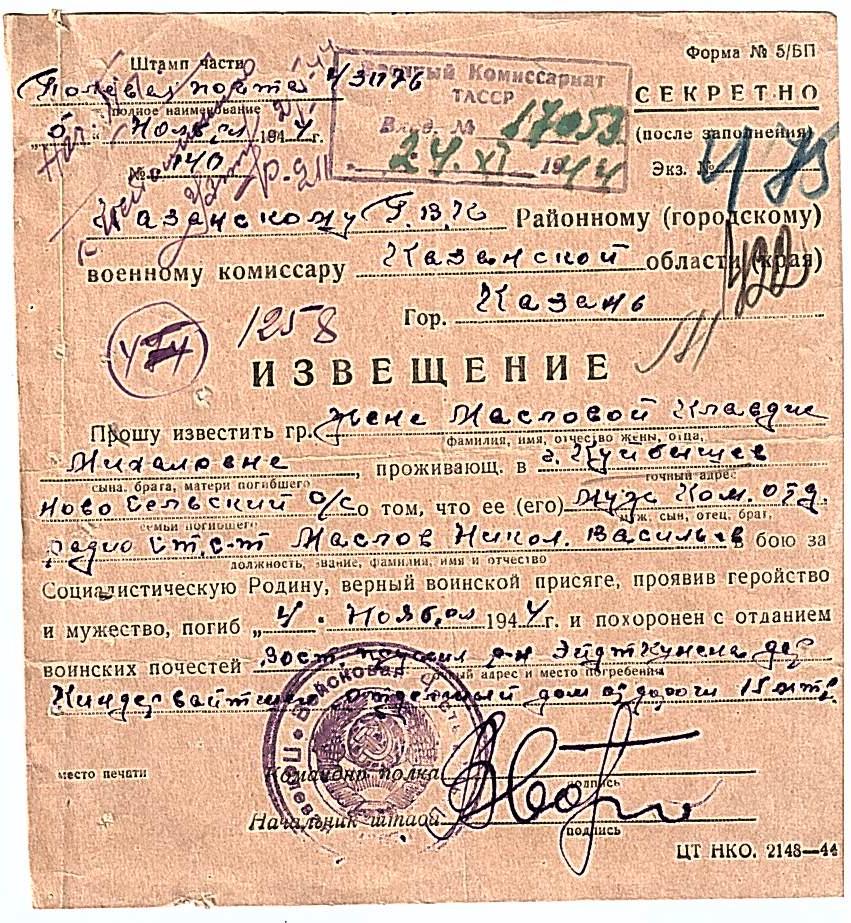 Штамп части
Форма № 5/БП
Полевая почта 43176
полное наименование
Военный Комиссариат
ТАССР
Вход. № 17053
24. XI 1944
СЕКРЕТНО
(после заполнения)
Экз. №
475
„5“ Ноября 1944 г.
№ 140
Казанскому Г.В.К Районному (городскому)
военному комиссару Казанской области (края)
422
Гор. Казань
1258
ИЗВЕЩЕНИЕ
Прошу известить гр. Жене Масловой Клавдие
фамилия, имя, отчество жены, отца,
Михаловне, проживающ. в г. Куйбышев
сына, брата, матери погибшего
точный адрес
Ново Сельский о/с о том, что ее (его) муж Ком. отд.
семьи погибшего
муж, сын, отец, брат,
радио Ст. с-т Маслов Никол. Васильев в бою за
должность, звание, фамилия, имя и отчество
Социалистическую Родину, верный воинской присяге, проявив геройство
и мужество, погиб „4“ Ноября 1944 г. и похоронен с отданием
воинских почестей Вост. р-н Эйдткунен дер
точный адрес и место погребения
отдельный дом от дороги 15 мтр.
Войсковая часть
место печати
Командир полка
подпись
Начальник штаба
подпись
ЦТ НКО. 2148—44